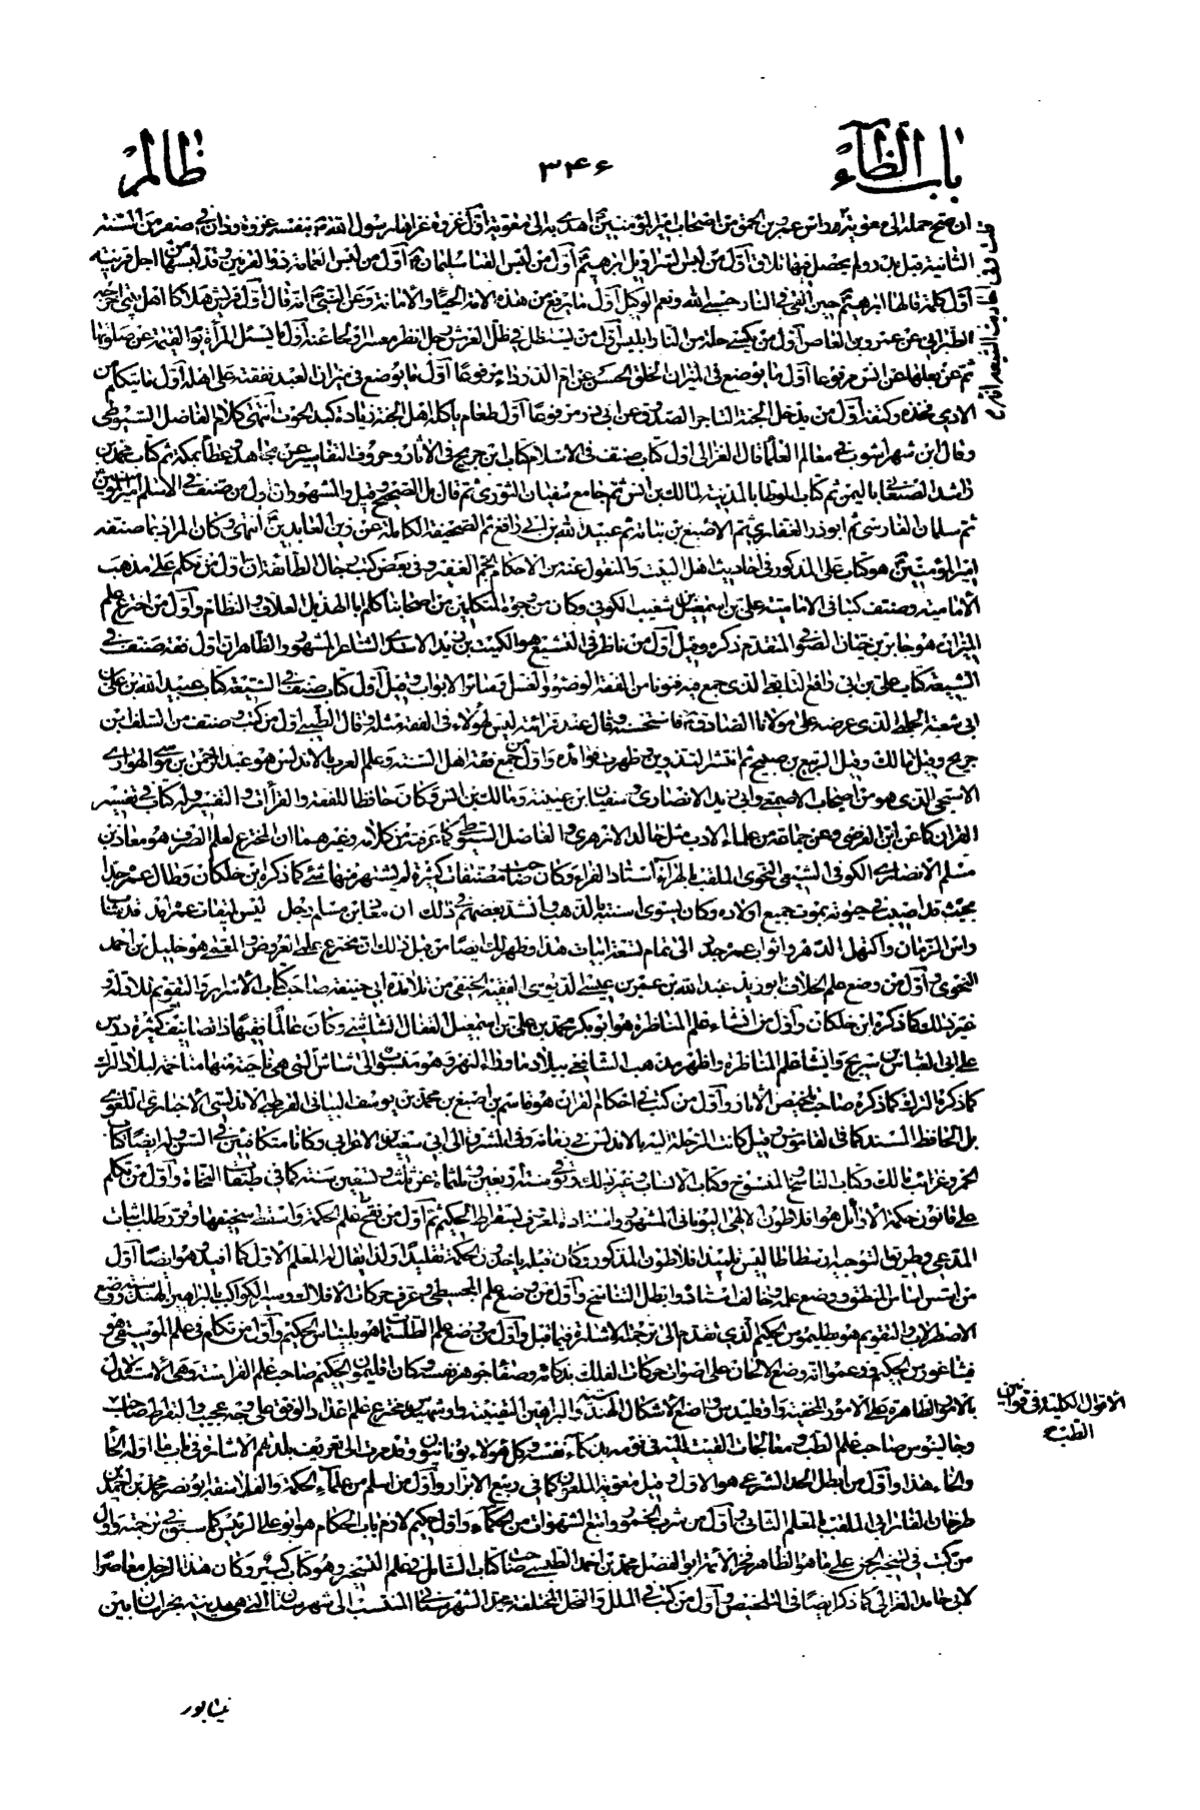 باب الظاء
۳۴۶
ظالم
الثانية قبل بدر ولم يحصل فيها تلاق أول من لبس السراويل ابرهيم أول من لبس القبا سليمان أول من لبس العمامة ذو القرنين
أول كلمة قالها ابرهيم حين القى في النار حسبى الله ونعم الوكيل أول ما يرفع من هذه الامة الحياء والامانة وعن النبى انه قال أول قريش هلاكا اهل بيتى
الطبرانى عن عمرو بن العاص أول من يكسى حلة من النار ابليس أول من يستظل في ظل العرش رجل انظر معسرا أو محا عنه أول ما يسئل المرأة يوم القيمة عن صلوتها
ثم عن بعلها عن انس مرفوعا أول ما يوضع في الميزان الخلق الحسن عن ام الدرداء مرفوعا أول ما يوضع في ميزان العبد نفقته على اهله أول ما يتكلم من
الادمى فخذه وكفه أول من يدخل الجنة التاجر الصدوق عن ابى ذر مرفوعا أول طعام يأكله اهل الجنة زيادة كبد الحوت انتهى كلام الفاضل السيوطى
وقال ابن شهراشوب في معالم العلماء قال الغزالى اول كتاب صنف في الاسلام كتاب ابن جريج في الاثار وحروف التفاسير عن مجاهد وعطا بمكة ثم كتاب معمر بن
راشد الصنعانى باليمن ثم كتاب الموطا بالمدينة لمالك بن انس ثم جامع سفيان الثورى ثم قال بل الصحيح وقيل والمشهور ان اول من صنف في الاسلام امير المؤمنين
ثم سلمان الفارسى ثم ابوذر الغفارى ثم الاصبغ بن نباته ثم عبيد الله بن ابى رافع ثم الصحيفة الكاملة عن زين العابدين انتهى وكان المراد بما صنفه
امير المؤمنين هو كتاب على المذكور في احاديث اهل البيت والمنقول عنه من الاحكام الجم الغفير وفى بعض كتب رجال الطائفة ان اول من تكلم على مذهب
الامامية وصنف كتبا في الامامة على بن اسمعيل بن شعيب الكوفى وكان من وجوه المتكلمين من اصحابنا كلم ابا الهذيل العلاف والنظام وأول من اخترع علم
الميزان هو جابر بن حيان الصوفى المتقدم ذكره وقيل أول من ناظر في التشيع هو الكميت بن زيد الاسدى الشاعر المشهور والظاهر ان اول فقه صنف في
الشيعة كتاب على بن ابى رافع التابعى الذى جمع فيه فنونا من الفقه الوضوء والغسل وسائر الابواب وقيل أول كتاب صنف في الشيعة كتاب عبيد الله بن على بن
ابى شعبة الحلبى الذى عرضه على مولانا الصادق فاستحسنه وقال عند قرائته ليس لهؤلاء في الفقه مثله وقال الطيبى اول من كتب وصنف من السلف ابن
جريج وقيل مالك وقيل الربيع بن صبيح ثم انتشر التدوين وظهرت فوائده وأول من جمع فقه اهل السنة وعلم العربية بالاندلس هو عبد الرحمن بن موسى الهوارى
الاستجى الذى هو من اصحاب الاصمعى وابى زيد الانصارى وسفيان بن عيينة ومالك بن انس وكان حافظا للفقه والقراءات والتفسير وله كتاب في تفسير
القران كما عن ابن الفرضى وعن جماعة من علماء الادب مثل خالد الازهرى والفاضل السيوطى كما عرفته من كلامه وغيرهما ان المخترع لعلم الصرف هو معاذ بن
مسلم الانصارى الكوفى الشيعى النحوى الملقب بالهراء استاد الفراء وكان صاحب مصنفات كثيرة لم يشتهر منها شئ كما ذكره ابن خلكان وطال عمره جدا
بحيث قد اصيب في حيوته بموت جميع اولاده وكان يسوى اسنانه بالذهب وانشد بعضهم في ذلك ان معاذ بن مسلم رجل ليس لميقات عمره امد قد شاب
راس الزمان واكتهل الدهر واثواب عمره جدد الى تمام تسعة ابيات هذا وظهر لك ايضا من قبل ذلك ان مخترع علمى العروض والمعمى هو خليل بن احمد
النحوى وأول من وضع علم الخلاف ابو زيد عبد الله بن عمر بن عيسى الدبوسى الفقيه الحنفى من تلامذة ابى حنيفة صاحب كتاب الاسرار والتقويم للادلة و
غير ذلك كما ذكره ابن خلكان وأول من افشاء علم المناظرة هو ابو بكر محمد بن على بن اسمعيل القفال الشاشى وكان عالما فقيها ذا تصانيف كثيرة درس
على ابى العباس بن سريج وانشا علم المناظرة واظهر مذهب الشافعى ببلاد ما وراء النهر وهو منسوب الى شاش التى هى ناحية منها متاخمة لبلاد الترك
كما ذكره صاحب تلخيص الآثار وأول من كتب في احكام القران هو قاسم بن اصبغ بن محمد بن يوسف البيانى القرطبى الاندلسى الاخبارى اللغوى
بل الحافظ المسند كما في القاموس وقيل كانت الرحلة اليه بالاندلس في زمانه وفى المشرق الى ابى سعيد بن الاعرابى وكانا متكافئين في السن وله ايضا كتاب
غرائب مالك وكتاب الناسخ والمنسوخ وكتاب الانساب وغير ذلك وتوفى سنة اربعين وثلثمائة عن ثلث وتسعين سنة كما في طبقات النحاة وأول من تكلم
على قانون حكمة الاوائل هو افلاطون الالهى اليونانى المشهور واستاده المعزى بسقراط الحكيم ثم أول من نقح علم الحكمة واسقط سخيفها وقرر طلب اثبات
المدعى وطريق التوجيه ارسطاطاليس تلميذ افلاطون المذكور وكان قبله ياخذون الحكمة تقليدا ولذا يقال له المعلم الاول كما افيد وهو ايضا أول
من اسس اساس المنطق ووضع علمه وخالف استاده وابطل التناسخ وأول من وضع علم المجسطى وعرف حركات الافلاك وسير الكواكب بالبراهين الهندسية ووضع
الاصطرلاب والتقويم هو بطليموس الحكيم الذى تقدم الى ترجمته الاشارة فيما قبل وأول من وضع علم الطلسمات هو بليناس الحكيم وأول من تكلم في علم الموسيقى هو
فيثاغورس الحكيم وعموا انه وضع الالحان على اصوات حركات الفلك بذكائه وصفاء جوهر نفسه وكان اقليمون الحكيم صاحب علم الفراسة وهى الاستدلال
بالامور الظاهرة على الامور الخفية واقليدس واضع الاشكال الهندسية والبراهين اليقينية وارشميدس مخترع علم اعداد الوفق على وجه عجيب والبقراط صاحب
الاقوال الكلية في قوانين
الطب
وجالينوس صاحب علم الطب ومعالجات الفيت اليه في نومه بذكاء نفسه وكل هؤلاء يونانيون وقد مرت الى تعريف بلدهم الاشارة في باب ما اوله الحاء
والخاء هذا وأول من ابطل الحد الشرعى هو الاول وقيل معوية الملعون كما في ربيع الابرار وأول من اسلم من علماء الحكمة والفلاسفة ابو نصر محمد بن احمد بن
طرخان الفارابى الملقب بالمعلم الثانى وأول من شرب الخمور واتبع الشهوات من الحكماء وأول حكيم لازم باب الحكام هو ابو على الرئيس كما سبق في ترجمته وأول
من كتب في تسخير الجن على ما هو الظاهر فخر الائمة ابو الفضل محمد بن احمد الطبسى صاحب كتاب الشامل في علم التسخير وهو كتاب كبير وكان هذا الرجل معاصرا
لابى حامد الغزالى كما ذكر ايضا في التلخيص وأول من كتب في الملل والنحل المختلفة هو الشهرستانى المنتسب الى شهرستان التى هى مدينة بخراسان بين
نيشابور